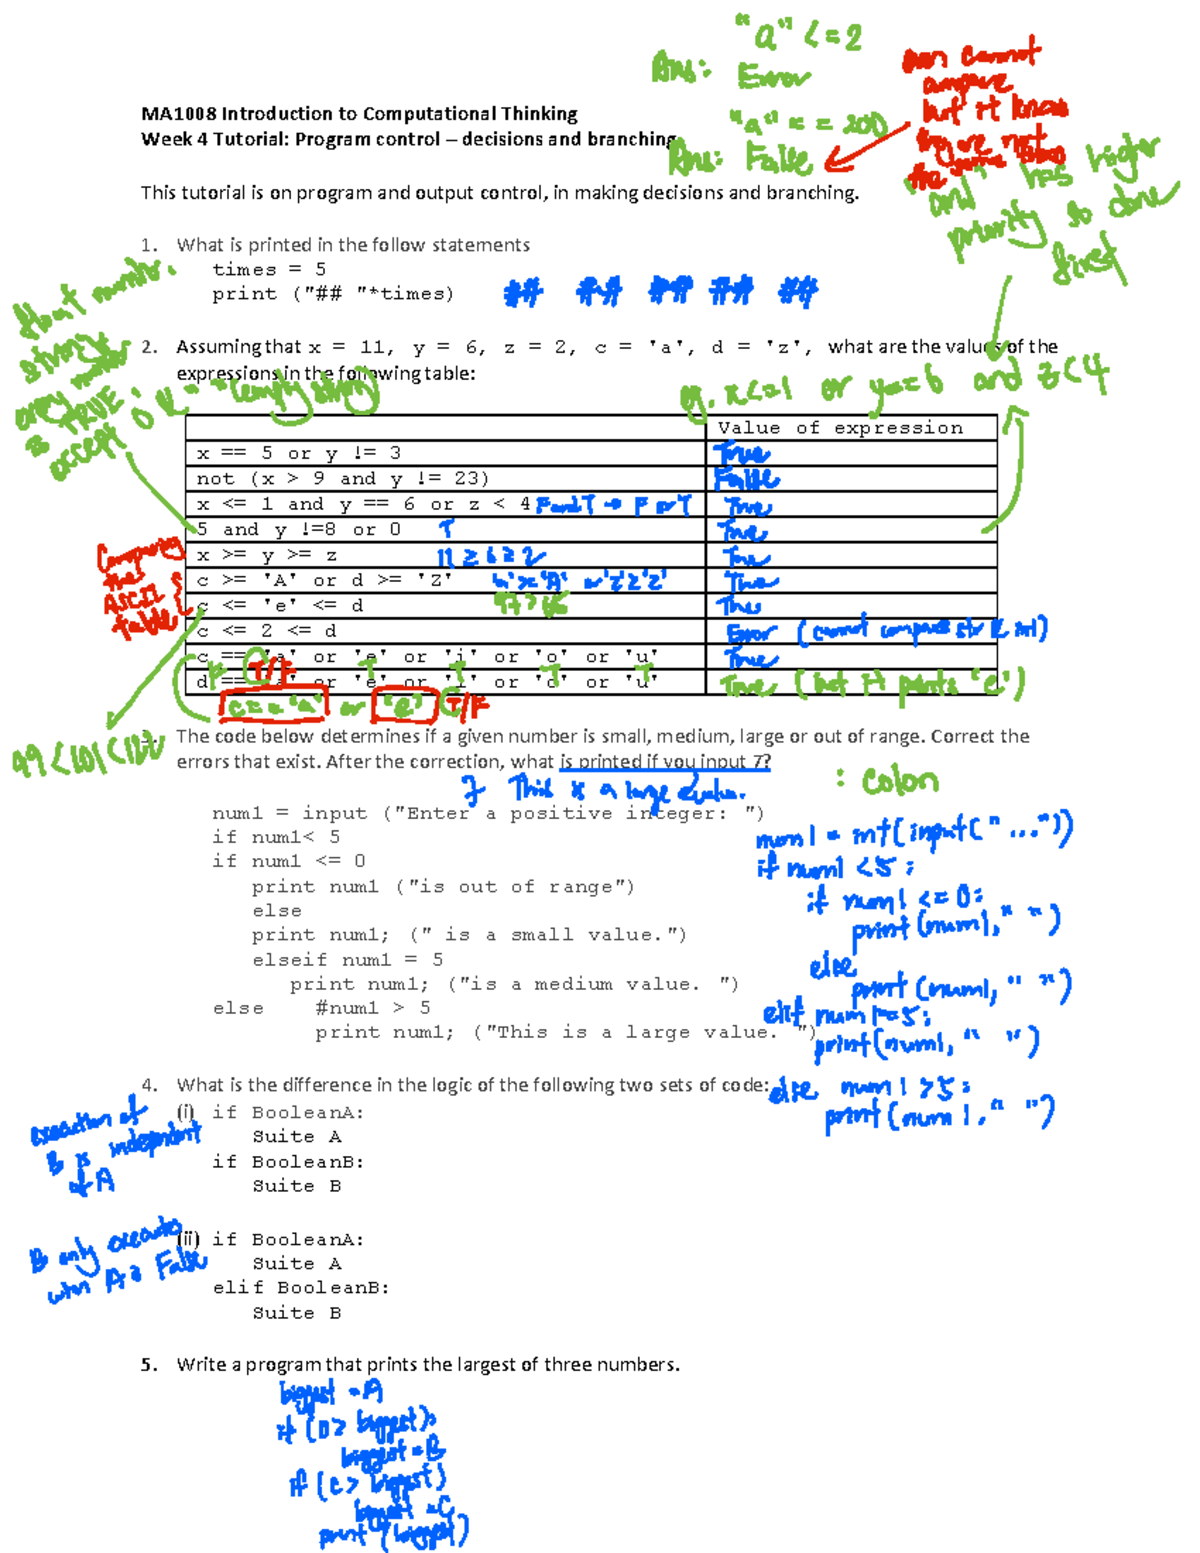 "a" <= 2
Ans: Error
"a" == 200
Ans: False
cannot
compare
but it knows
they are not
the same
MA1008 Introduction to Computational Thinking
Week 4 Tutorial: Program control – decisions and branching
"and" has higher
priority so done
first
This tutorial is on program and output control, in making decisions and branching.
1. What is printed in the follow statements
times = 5
print ("## "*times)
## ## ## ## ##
float number,
string
any number
is TRUE
accept 0 & " " (empty string)
2. Assuming that x = 11, y = 6, z = 2, c = 'a', d = 'z', what are the values of the
expressions in the following table:
eg. x<=1 or y==6 and z<4
Value of expression
x == 5 or y != 3 True
not (x > 9 and y != 23) False
x <= 1 and y == 6 or z < 4 F and T → F or T True
5 and y !=8 or 0 T True
x >= y >= z 11 ≥ 6 ≥ 2 True
Comparing
the
ASCII
table
c >= 'A' or d >= 'Z' 'a' >= 'A' or 'z' ≥ 'Z' True
c <= 'e' <= d 97 > 65 True
c <= 2 <= d Error (cannot compare str & int)
c == 'a' or 'e' or 'i' or 'o' or 'u' True
F T/F T T T T
d == 'a' or 'e' or 'i' or 'o' or 'u' True (but it prints 'e')
c == "a" or "e" T/F
3. The code below determines if a given number is small, medium, large or out of range. Correct the
errors that exist. After the correction, what is printed if you input 7?
7 This is a large value.
: colon
num1 = input ("Enter a positive integer: ")
if num1< 5
if num1 <= 0
print num1 ("is out of range")
else
print num1; (" is a small value.")
elseif num1 = 5
print num1; ("is a medium value. ")
else #num1 > 5
print num1; ("This is a large value. ")
num1 = int(input("..."))
if num1 <5:
if num1 <= 0:
print (num1, " ")
else
print (num1, " ")
elif num1==5:
print(num1, " ")
else num1 >5:
print (num1, " ")
4. What is the difference in the logic of the following two sets of code:
execution of
B is independent
of A
(i) if BooleanA:
Suite A
if BooleanB:
Suite B
B only executes
when A is False
(ii) if BooleanA:
Suite A
elif BooleanB:
Suite B
5. Write a program that prints the largest of three numbers.
biggest = A
if (B > biggest):
biggest = B
if (C > biggest)
biggest = C
print (biggest)